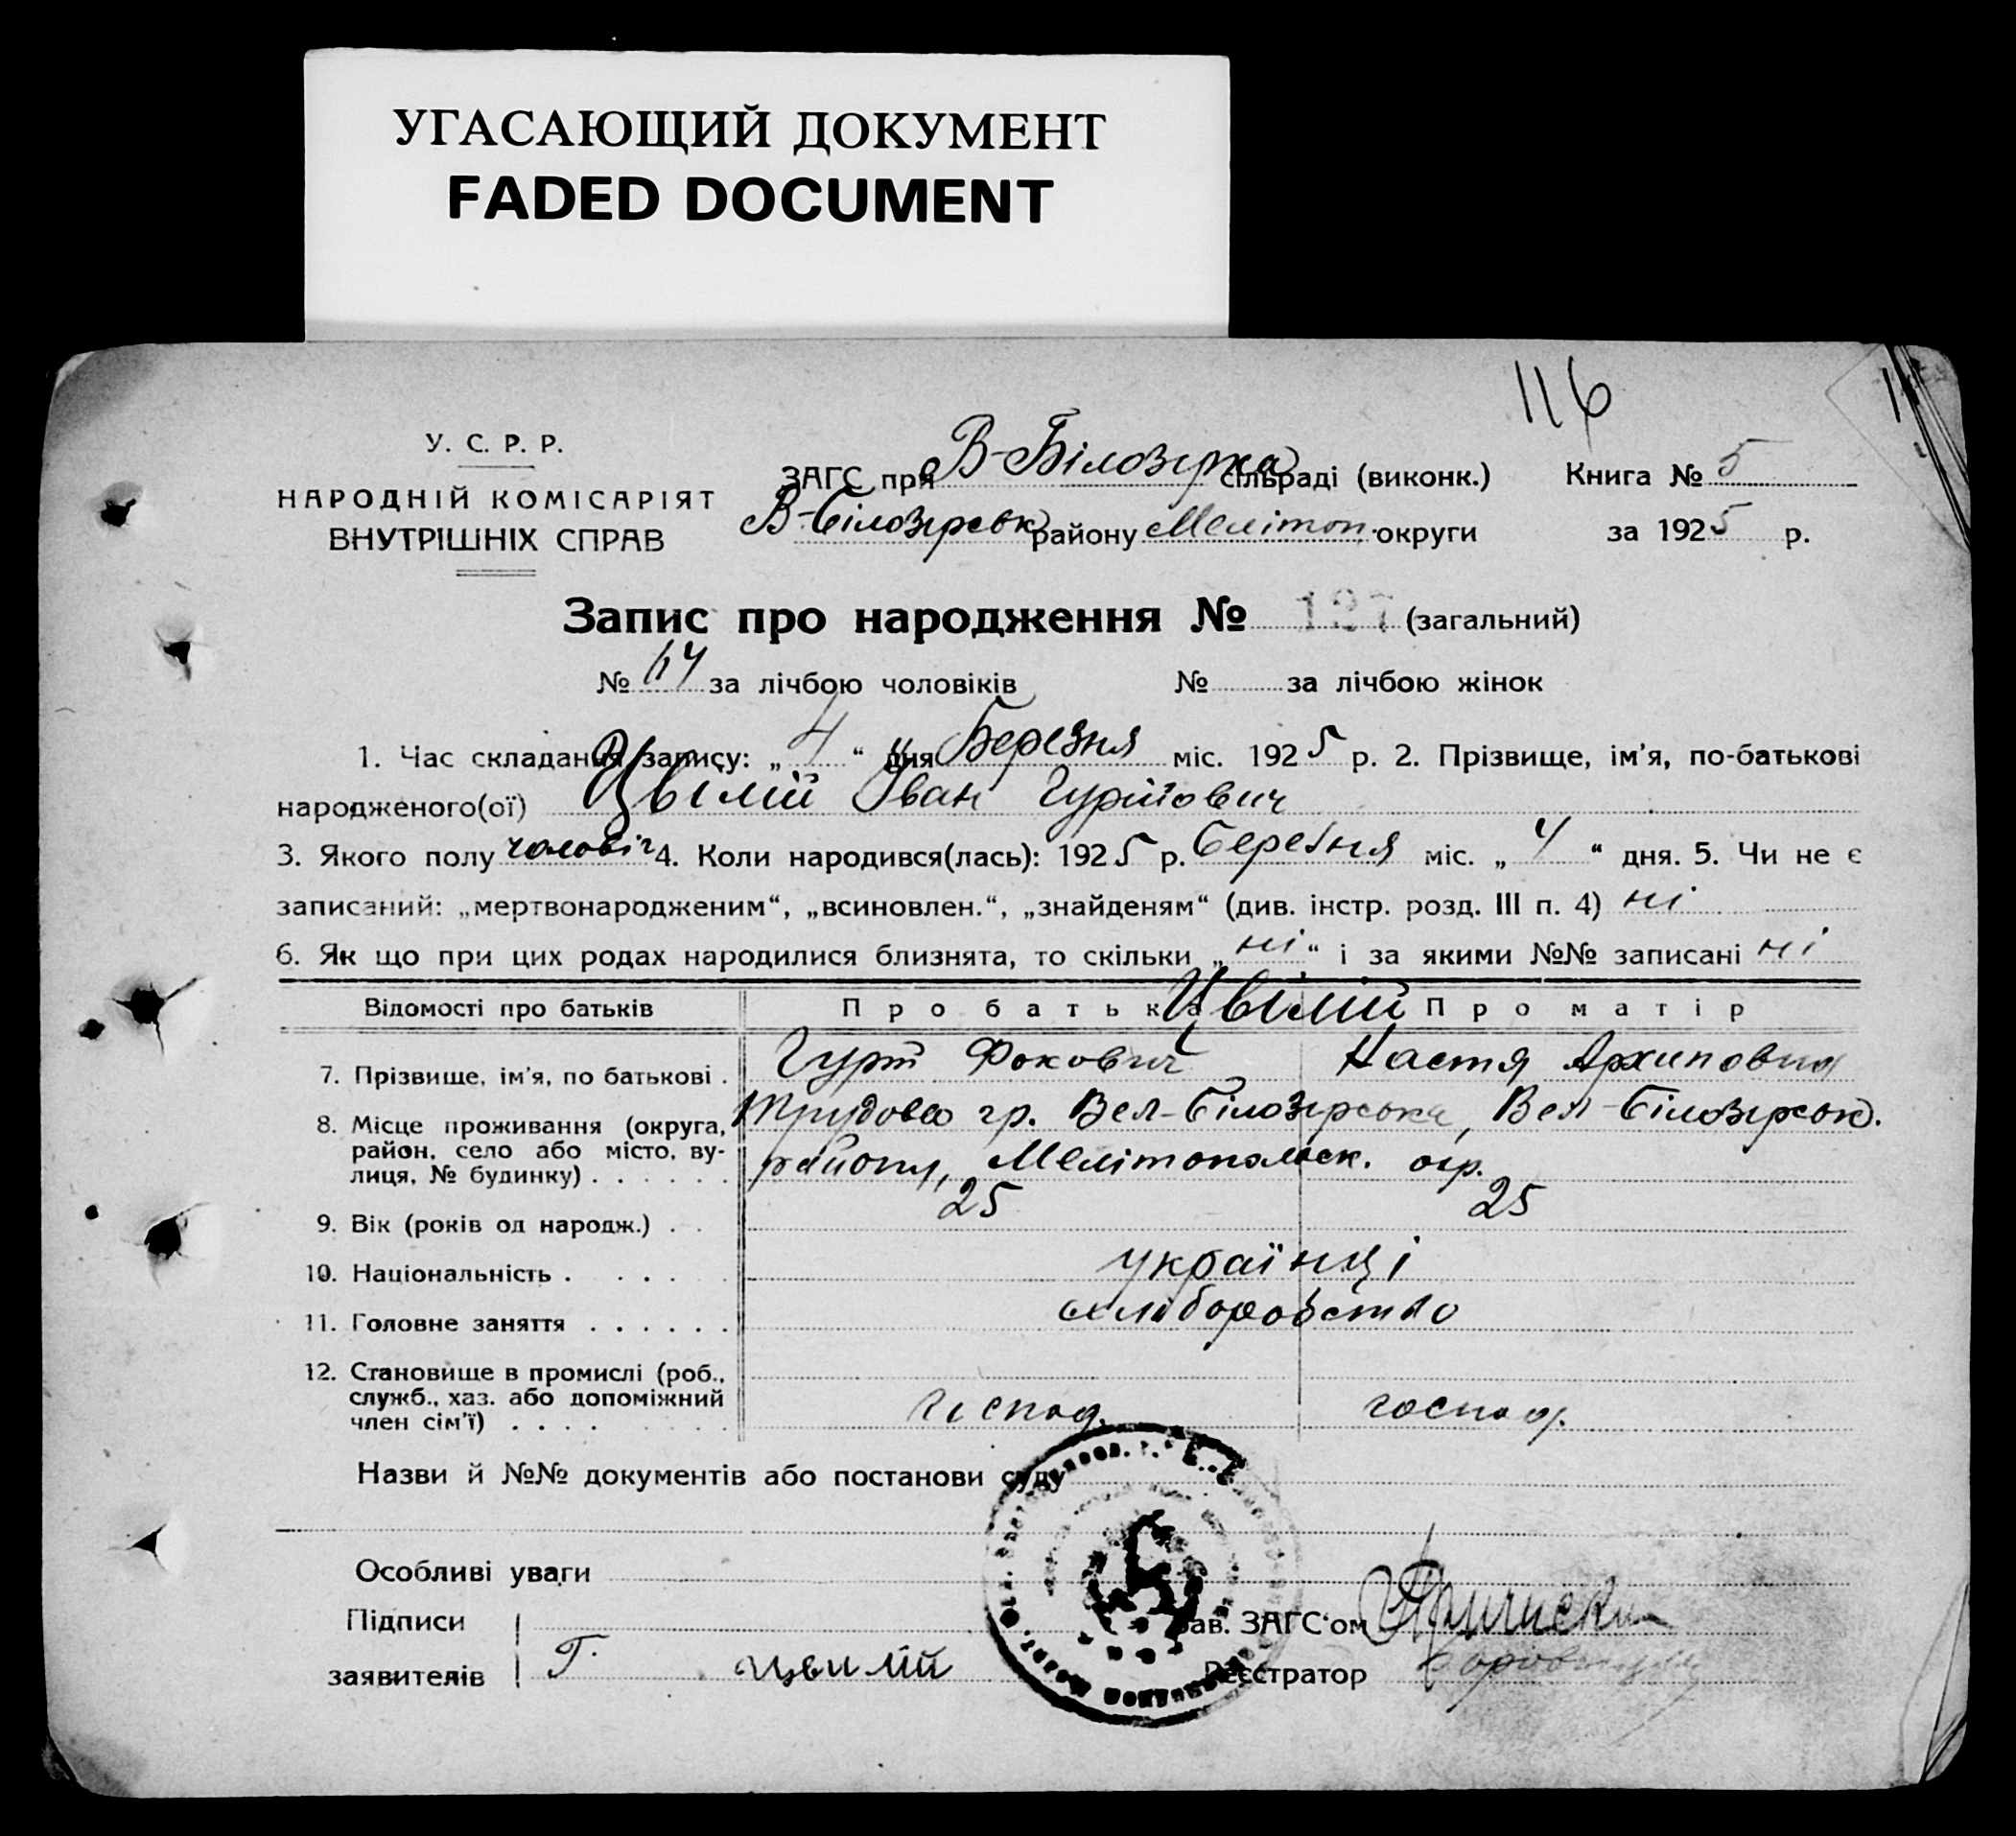 УГАСАЮЩИЙ ДОКУМЕНТ
FADED DOCUMENT
116
У. С. Р. Р.
НАРОДНІЙ КОМІСАРІЯТ
ВНУТРІШНІХ СПРАВ
ЗАГС при В-Білозірка сільраді (виконк.)
В-Білозірськ району Мелітоп. округи
Книга № 5
за 1925 р.
Запис про народження № 127 (загальний)
№ 64 за лічбою чоловіків № за лічбою жінок
1. Час складання запису: „4“ дня Березня міс. 1925 р. 2. Прізвище, ім'я, по-батькові
народженого(ої) Цвілій Іван Гурійович
3. Якого полу чоловіч 4. Коли народився(лась): 1925 р. Березня міс. „4“ дня. 5. Чи не є
записаний: „мертвонародженим“, „всиновлен.“, „знайденям“ (див. інстр. розд. III п. 4) ні
6. Як що при цих родах народилися близнята, то скільки „ні“ і за якими №№ записані ні
Відомості про батьків Про батька Про матір
Цвілій
7. Прізвище, ім'я, по батькові . Гурій Фокович Настя Архиповна
8. Місце проживання (округа, район, село або місто, вулиця, № будинку) . . . . . . Трудова гр. Вел-Білозірська, Вел-Білозірськ.
району, Мелітопольск. окр.
9. Вік (років од народж.) . . 25 25
10. Національність . . . . . українці
11. Головне заняття . . . . . . хліборобство
12. Становище в промислі (роб., служб., хаз. або допоміжний член сім'ї) . . . . господ. господ.
Назви й №№ документів або постанови суду
Особливі уваги
Підписи
заявителів Г. Цвилій
Зав. ЗАГС'ом
Реєстратор